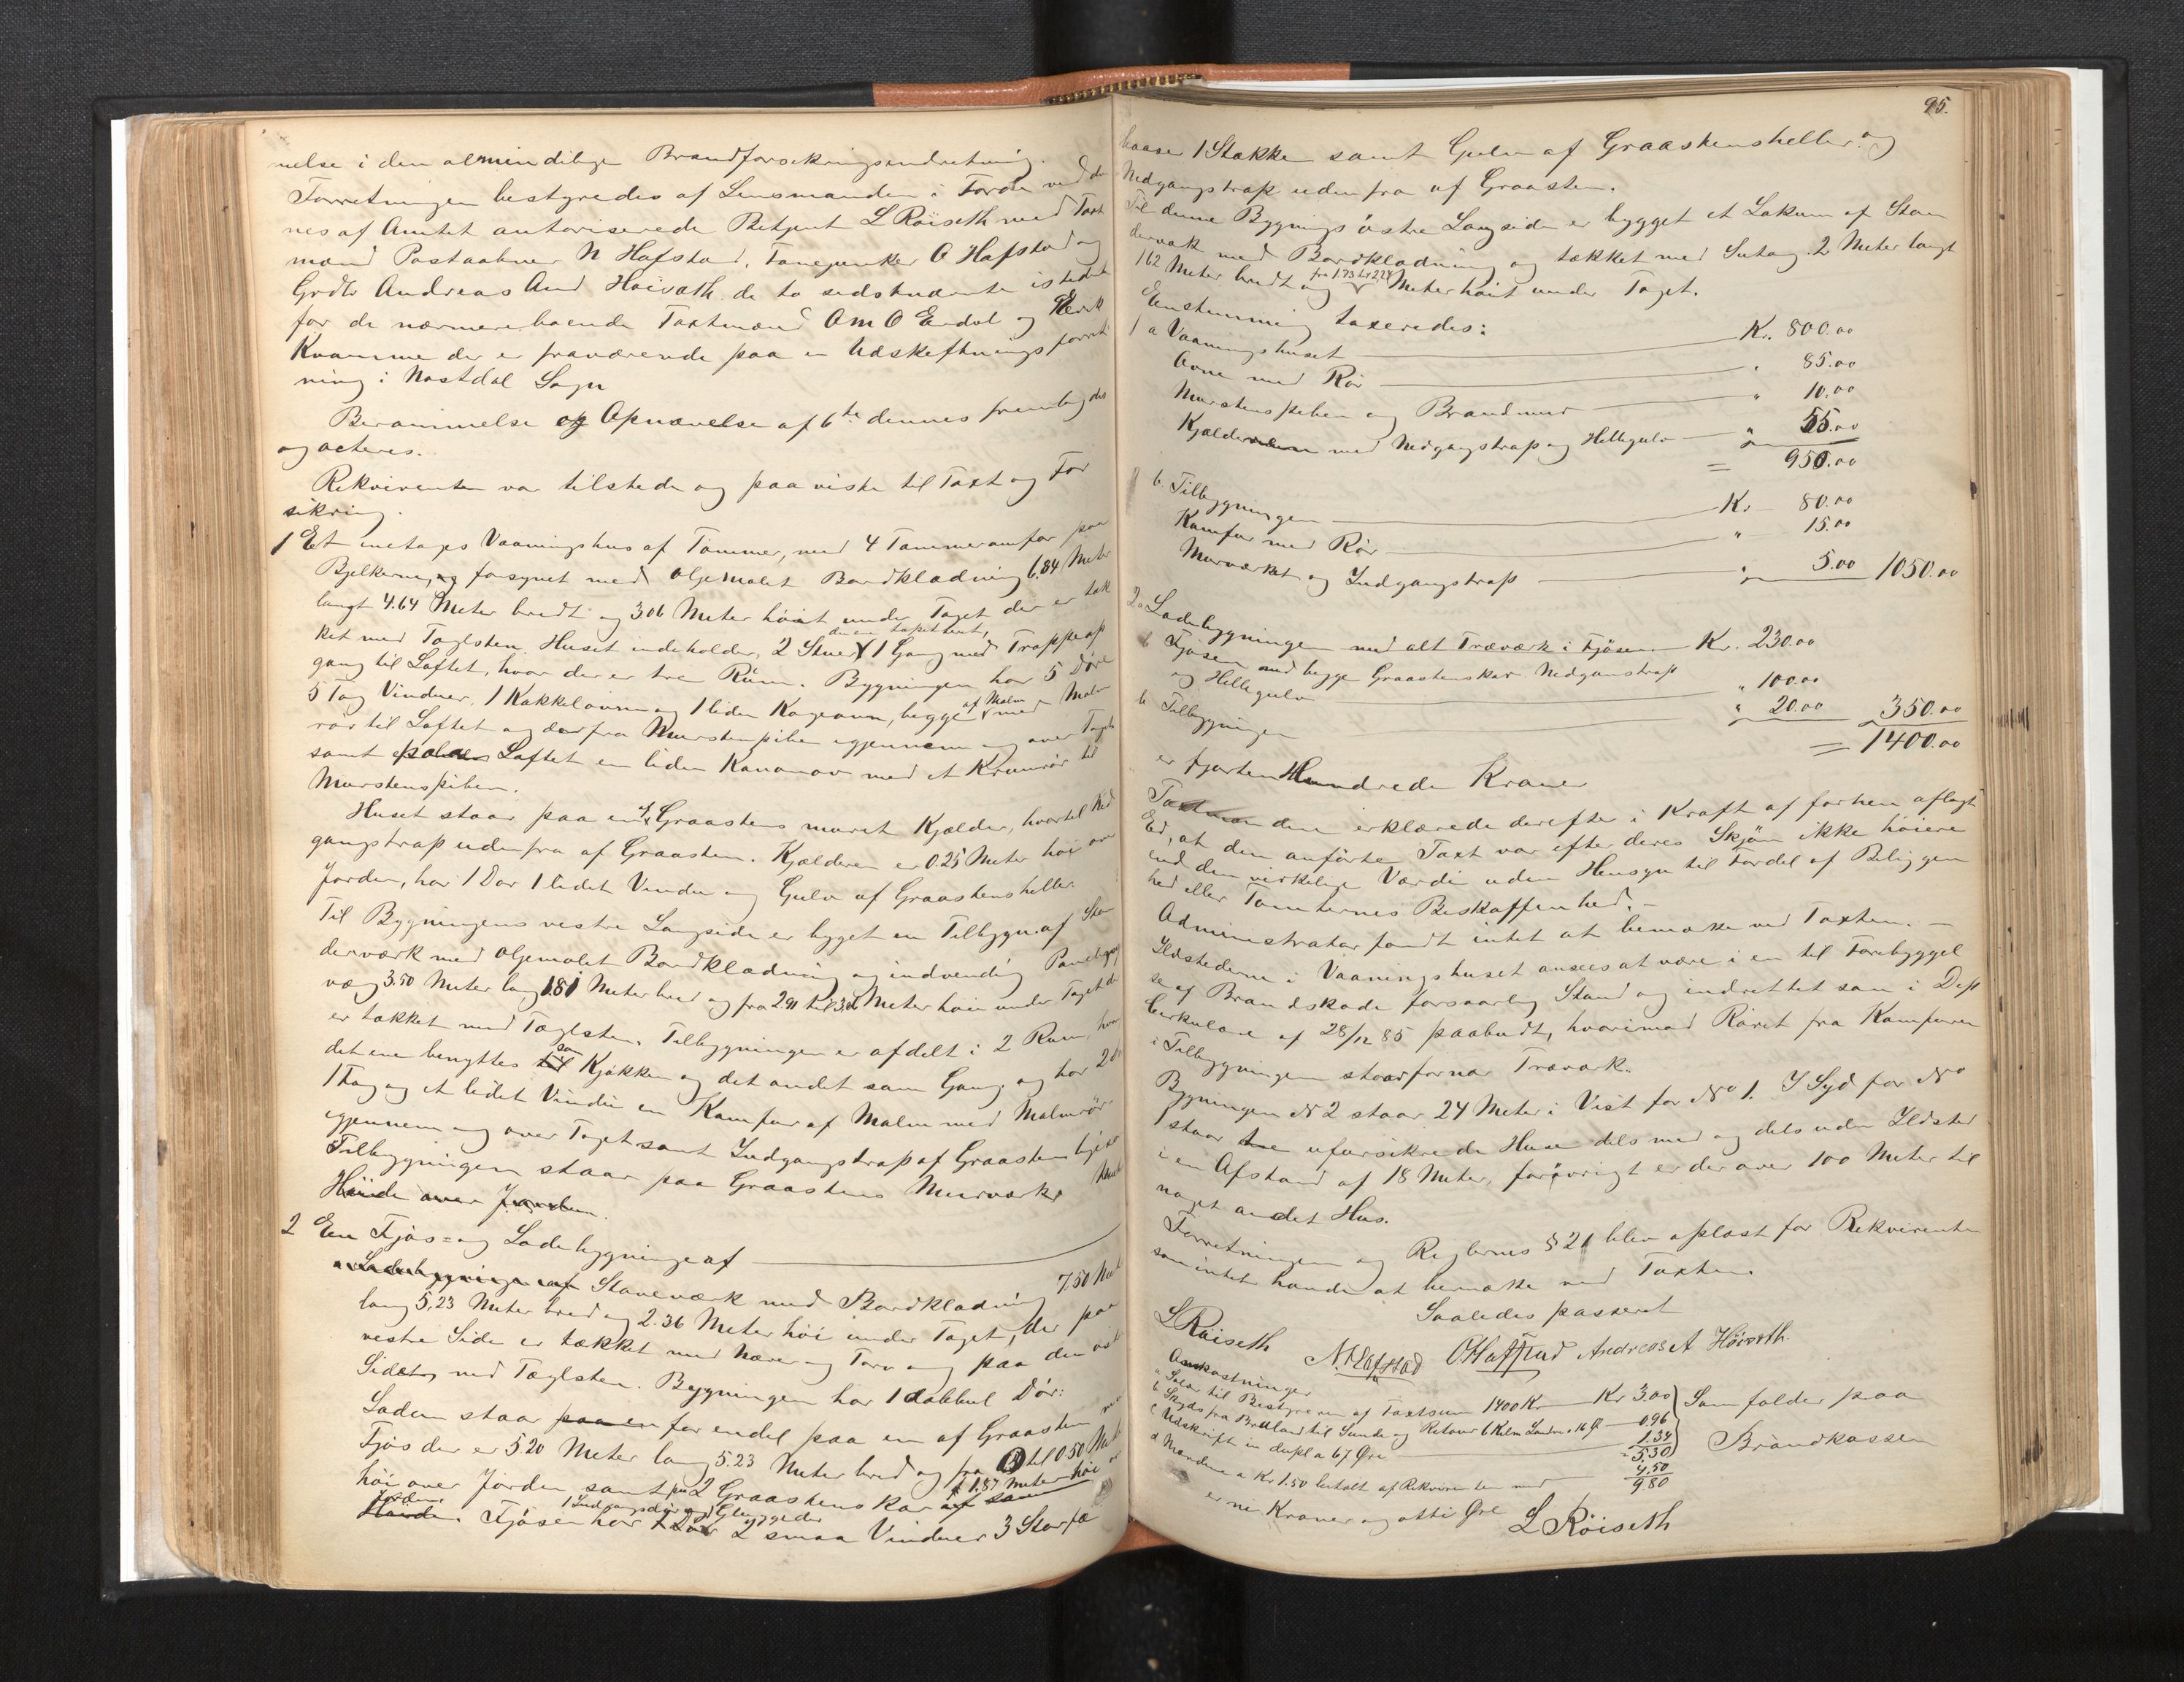 nelse i den almindelige Brandforsikringsindretning.
Forretningen bestyredes af Lensmanden i Førde ved de
nes af Amtet autoriserede Betjent L Röiseth med Taxt
mænd Postaabner N Hafstad, Fanejunker O Hafstad og
Grdbr Andreas And Höivoth de to sidstnævnte istedet
for de nærmereboende Taxtmænd Om O Erdal og Henrik
Kvamme der er fraværende paa en Udskiftningsforret
ning i Nostdal Sogn
Berammelse og Opnævnelse af 6te dennes fremlagdes
og acteres.
Rekvirenten var tilstede og paaviste til Taxt og For
sikring.
1 Et enetages Vaaningshus af Tømmer, med 4 Tømmeromfar paa
Bjelkerne, og forsynet med oljemalet Bordklædning 6.84 Meter
langt 4.64 Meter bredt og 3.06 Meter høit under Taget der er tæk
ket med Taglsten. Huset indeholder, 2 Stuer der er tapetseret, 1 Gang med Trappeop
gang til Loftet, hvor der er tre Rum. Bygningen har 5 Døre
5 Fag Vinduer, 1 Kakkelovn og 1 liden Kogeovn, begge af Malm med Malm
rør til Loftet og derfra Murstenspibe igjennem og over Taget
samt paa Loftet en liden Kanonov med et Krumrør til
Murstenspiben.
Huset staar paa en Graastens muret Kjælder, hvortil Ned
gangstrap udenfra af Graasten. Kjælderen er 0.25 Meter høi over
Jorden, har 1 Dør 1 lidet Vindu og Gulv af Graastensheller.
Til Bygningens vestre Langside er bygget en Tilbygn. af Sten
derværk med oljemalet Bordklædning og indvendig Panelings
væg 3.50 Meter lang 1.81 Meter bred og fra 2.91 til 3.06 Meter høi under Taget der
er tækket med Taglsten. Tilbygningen er afdelt i 2 Rum, hvor
det ene benyttes til som Kjøkken og det andet som Gang, og har 2 Dø
1 Fag og et lidet Vindu en Komfur af Malm med Malmrør
igjennem og over Taget samt Indgangstrap af Graasten
Tilbygningen staar paa Graastens Murværk
Høide over Jorden.
2 En Fjøs- og Ladebygninge af
Ladebygninge af Staveværk med Bordklædning 7.50 Meter
lang 5.23 Meter bred og 2.36 Meter høi under Taget, der paa
vestre Side er tækket med Næver og Torv og paa den øst
Side med Taglsten. Bygningen har 1 dobbel Dør:
Laden staar paa en for endel paa en af Graasten
Fjøs der er 5.20 Meter lang 5.23 Meter bred og fra til 0.50 Meter
høi over Jorden samt paa 2 Graastens Kar af samme 1.87 Meter høi
Jorden
Høide. Fjøsen har 1 Indgangsdør og Gluggedør 2 smaa Vinduer 3 Storfæ
95.
baase 1 Stakke samt Gulv af Graastensheller og
Nedgangstrap udenfra af Graasten.
Til denne Bygnings østre Langside er bygget et Lokum af Sten
derværk med Bordklædning og tækket med Sutag. 2 Meter langt
1.62 Meter bredt og fra 1.73 til 2.24 Meter høit under Taget.
Eenstemmig taxeredes:
1 a Vaaningshuset Kr. 800.00
Ovne med Rør " 85.00
Murstenspiben og Brandmur " 10.00
Kjælderen med Nedgangstrap og Hellegulv " 55.00
= 950.00
b. Tilbygningen Kr. 80.00
Komfur med Rør " 15.00
Murværket og Indgangstrap " 5.00 1050.00
2 a Ladebygningen med alt Træværk i Fjøsen Kr. 230.00
b Fjøsen med begge Graastenskar. Nedganstrap
og Hellegulv " 100.00
b Tilbygningen " 20.00 350.00
= 1400.00
er fjorten Hundrede Kroner
Taxtmændene erklærede derefter i Kraft af forhen aflagt
Ed, at den anførte Taxt var efter deres Skjøn ikke høiere
end den virkelige Værdi uden Hensyn til Fordel af Beliggen
hed eller Tomternes Beskaffenhed. —
Administrator fandt intet at bemærke ved Taxten. —
Ildstederne i Vaaningshuset ansees at være i en til Forebyggel
se af Brandskade forsvarlig Stand og indrettet som i Dep
Cirkulære af 28/12 85 paabudt, hvorimod Røret fra Komfuren
i Tilbygningen staar for nær Træværk.
Bygningen No 2 staar 24 Meter i Vest for No 1. I Syd for No
1 staar tre uforsikrede Huse dels med og dels uden Ildsted
i en Afstand af 18 Meter, forøvrigt er der over 100 Meter til
noget andet Hus.
Forretningen og Reglernes § 21 blev oplæst for Rekvirenten
som intet havde at bemærke ved Taxten.
Saaledes passeret
L Röiseth N. Hafstad O Hafstad Andreas A Höivoth.
Omkostninger
a Salær til Bestyreren af Taxtsum 1400 Kr. Kr 3.00
b Skyds fra Bruland til Sunde og Retour 6 Kilm Landv. a 16 Ø 0.96
c Udskrift in dupl a 67 Øre 1.34
5.30
Som falder paa
Brandkassen
d Mændene a Kr 1.50 betalt af Rekvirenten med 4.50
9.80
er ni Kroner og otti Øre
L Röiseth